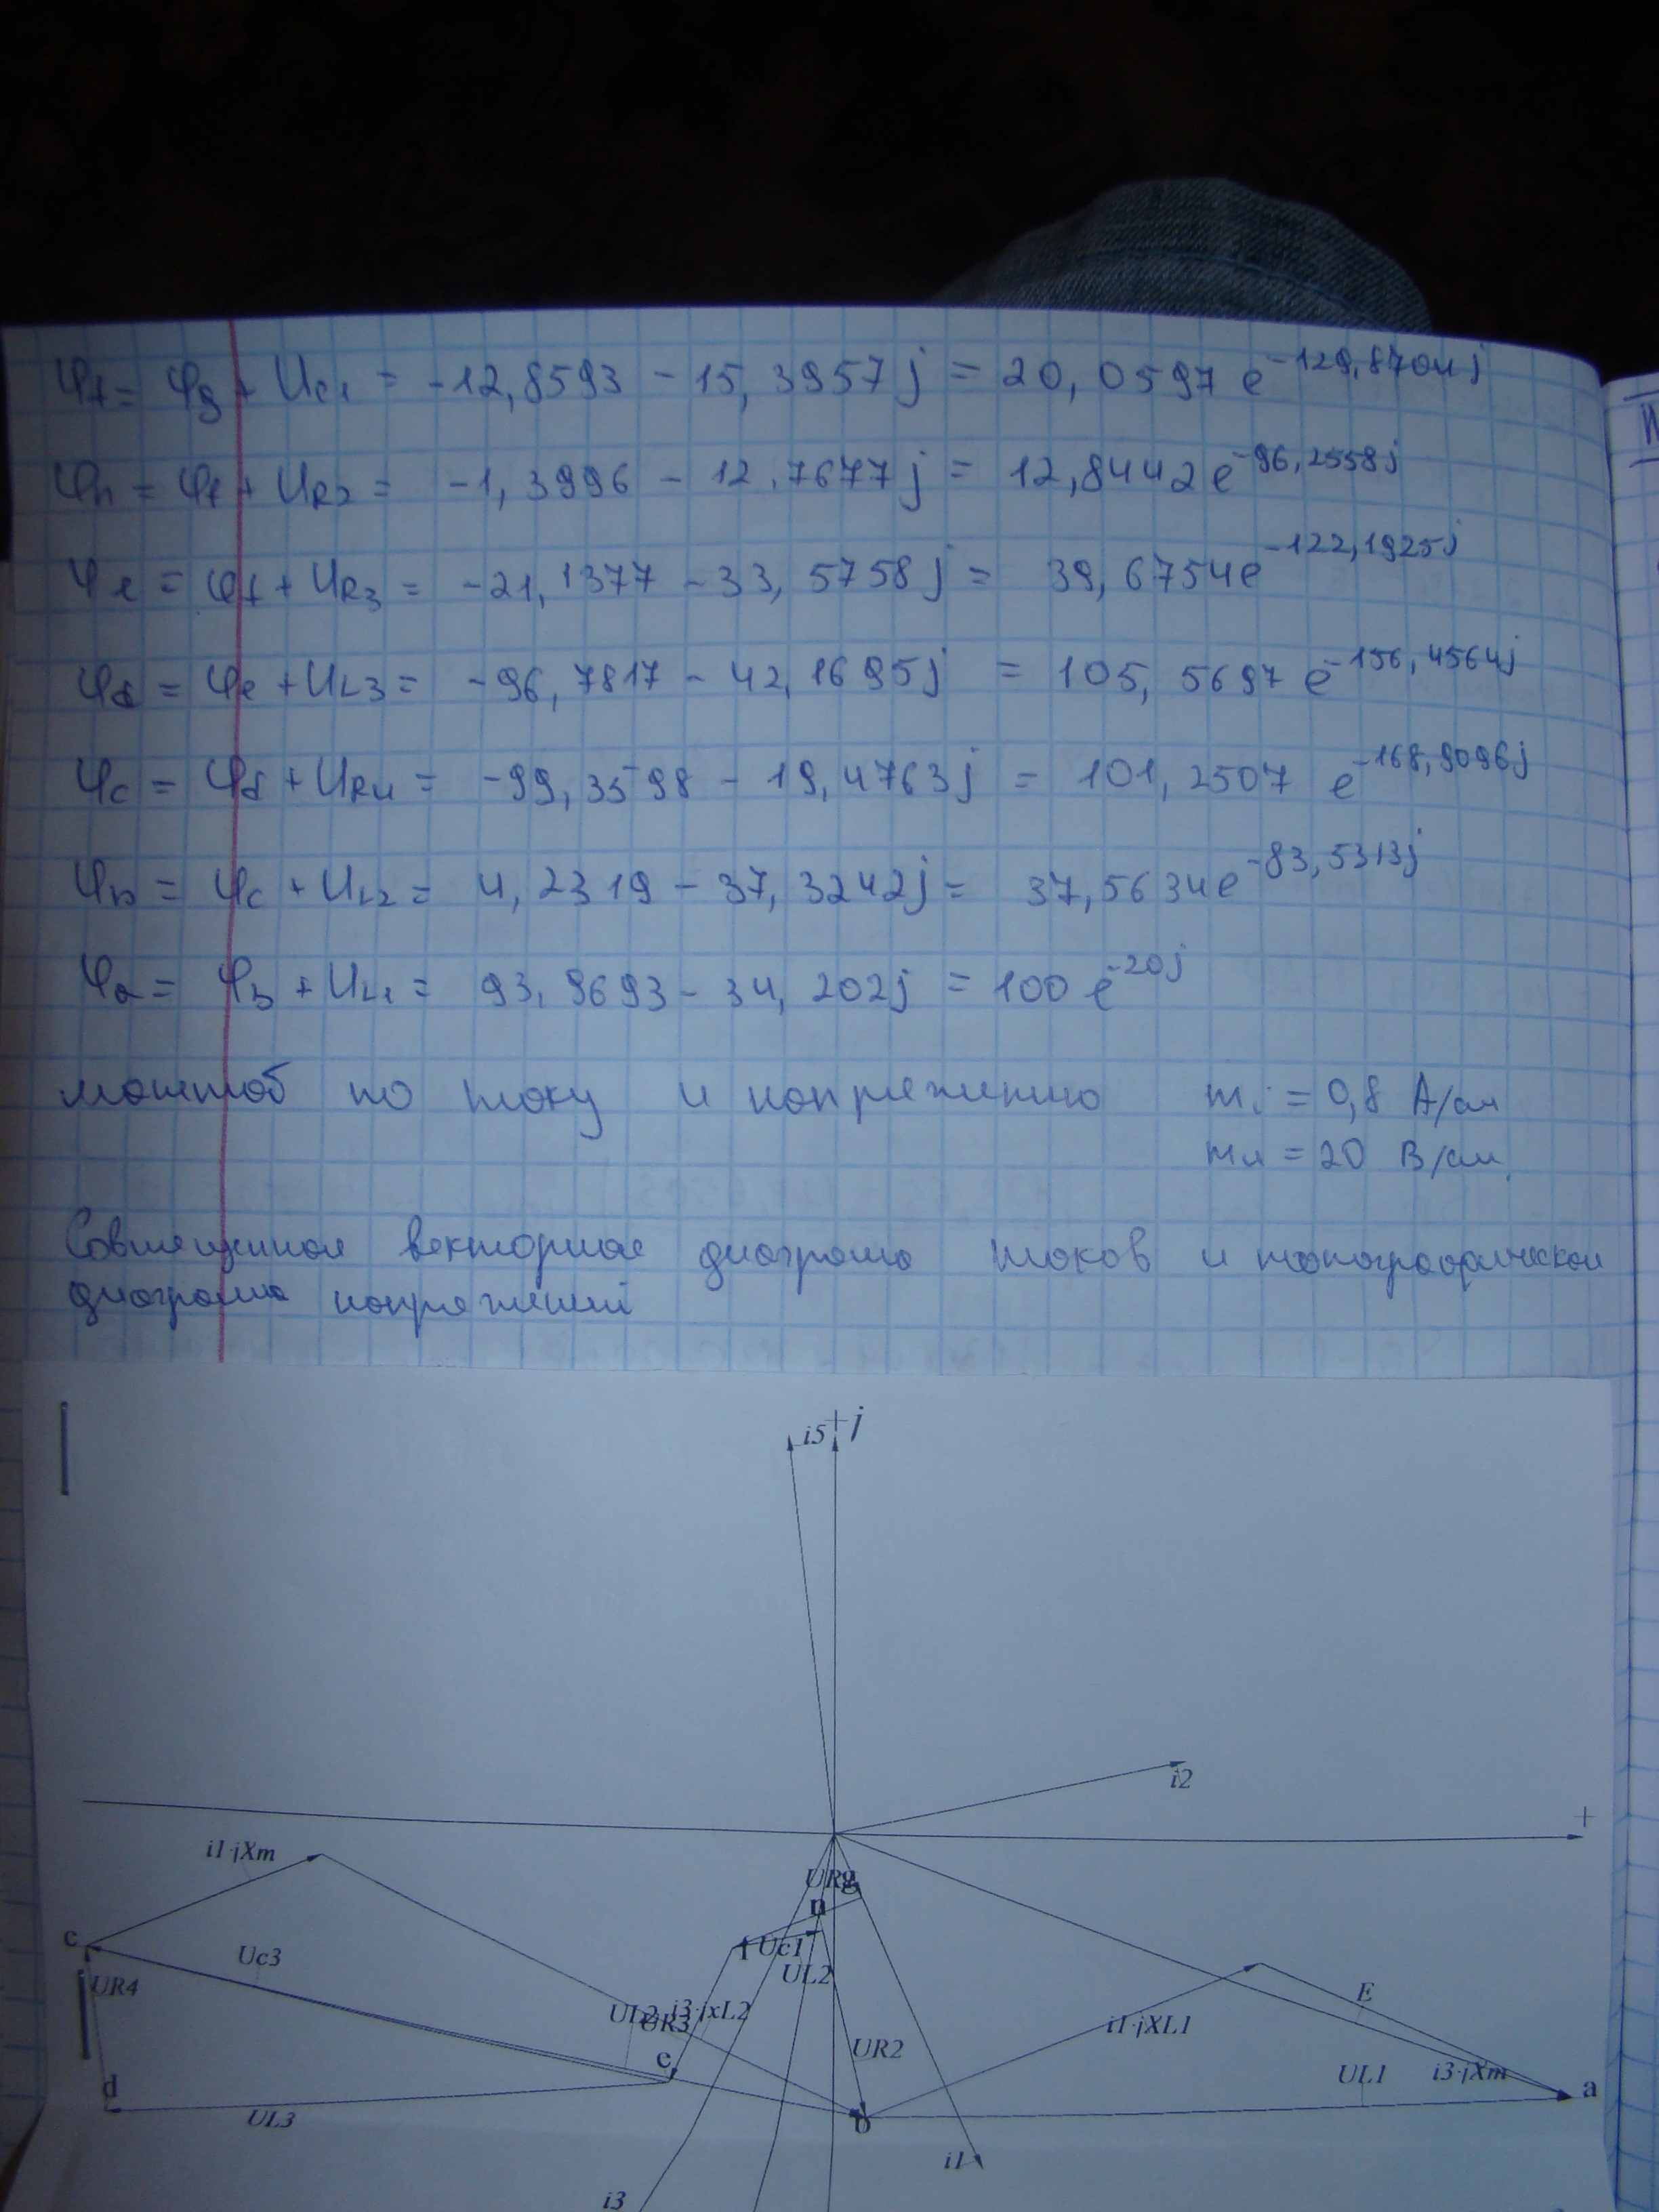 φf = φg + Uc1 = -12,8593 - 15,3957j = 20,0597 e^-129,8704j
φn = φf + UR2 = -1,3996 - 12,7677j = 12,8442 e^-96,2558j
φe = φf + UR3 = -21,1377 - 33,5758j = 39,6754 e^-122,1925j
φd = φe + UL3 = -96,7817 - 42,1695j = 105,5697 e^-156,4564j
φc = φd + UR4 = -99,3598 - 19,4763j = 101,2507 e^-168,9096j
φb = φc + UL2 = 4,2319 - 37,3242j = 37,5634 e^-83,5313j
φa = φb + UL1 = 93,9693 - 34,202j = 100 e^-20j
масштаб по току и напряжению mi = 0,8 А/см
mu = 20 В/см
Совмещенная векторная диаграмма токов и топографическая
диаграмма напряжений
i5 +j
i2
+
i1·jXm
UR g
n
c
Uc3
f Uc1
UL2
UR4
E
UL2 UR3 i3·jxL2
i1·jXL1
UR2
e
UL1 i3·jXm
d
a
UL3
b
i1
i3